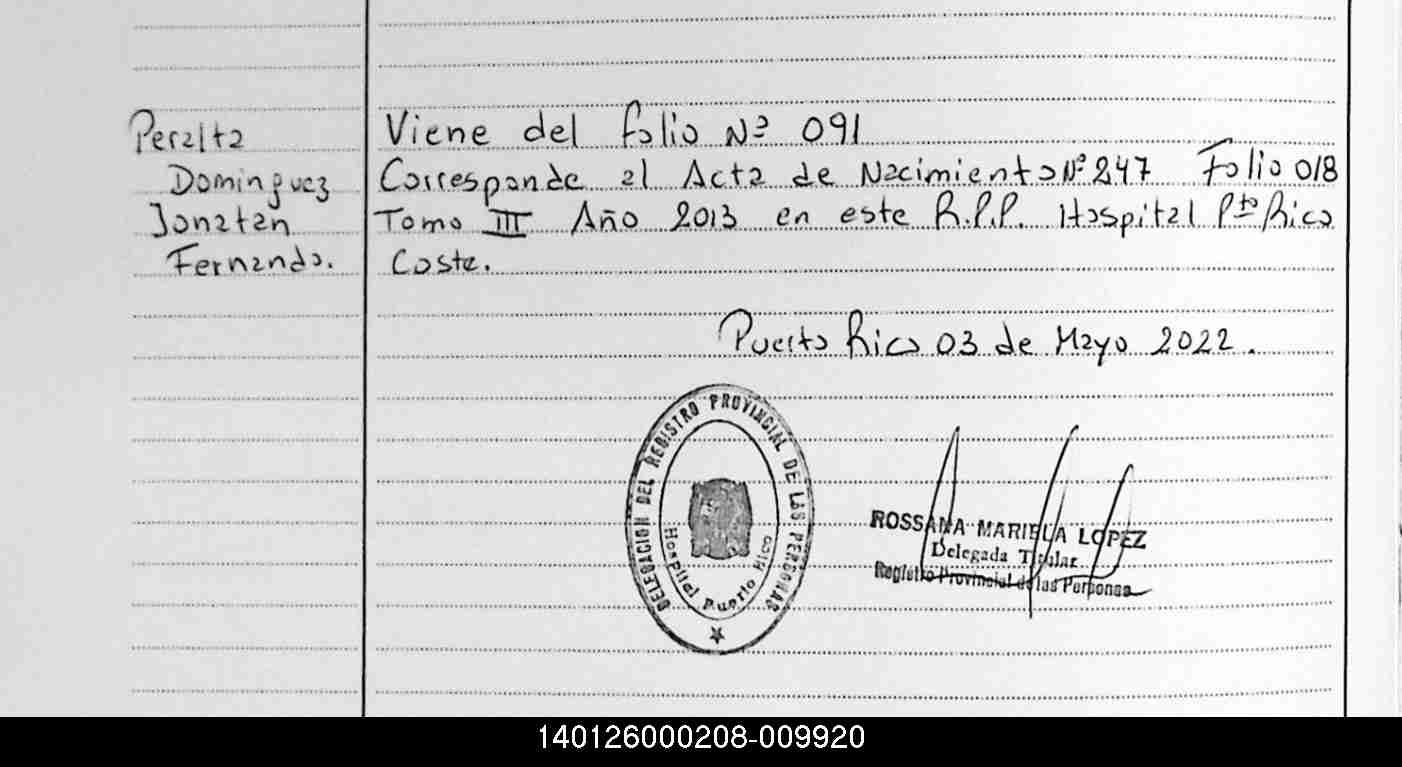 Peralta
Dominguez
Jonatan
Fernando.
Viene del folio Nº 091
Corresponde al Acta de Nacimiento Nº 247 Folio 018
Tomo III Año 2013 en este R.P.P. Hospital Pto Rico
Coste.
Puerto Rico 03 de Mayo 2022.
DELEGACION DEL REGISTRO PROVINCIAL DE LAS PERSONAS
Hospital Puerto Rico
ROSSANA MARIELA LOPEZ
Delegada Titular
Registro Provincial de las Personas
140126000208-009920